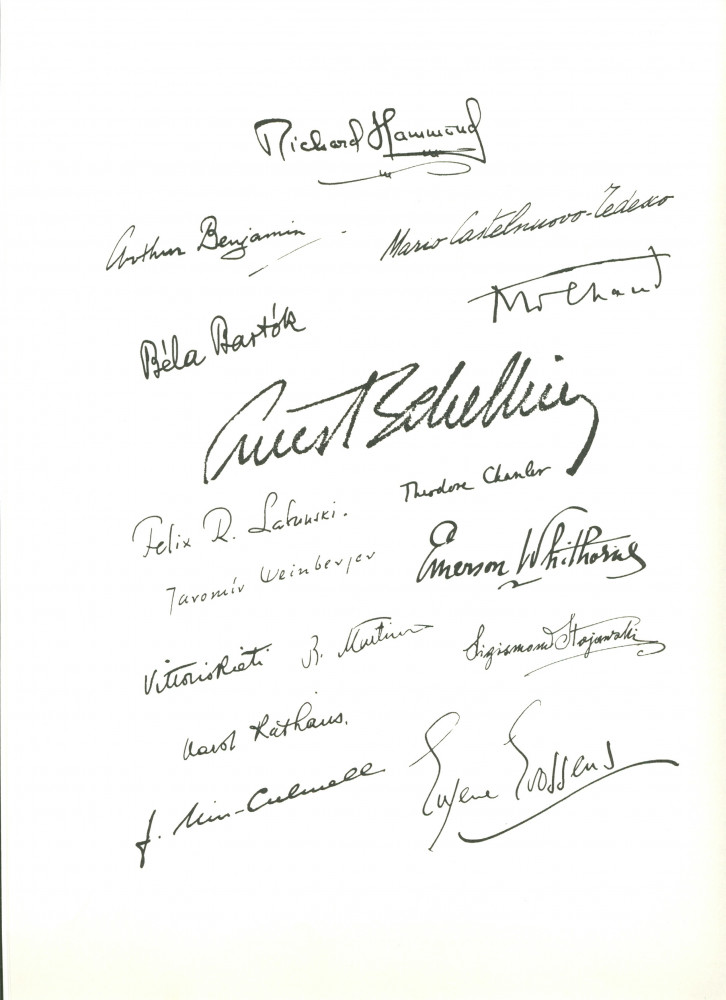 Richard Hammond
Arthur Benjamin
Mario Castelnuovo-Tedesco
Béla Bartók
Milhaud
Ernest Schelling
Theodore Chanler
Felix R. Labunski.
Jaromír Weinberger
Emerson Whithorne
Vittorio Rieti
B. Martinu
Sigismond Stojowski
Karol Rathaus.
J. Nin-Culmell
Eugene Goossens